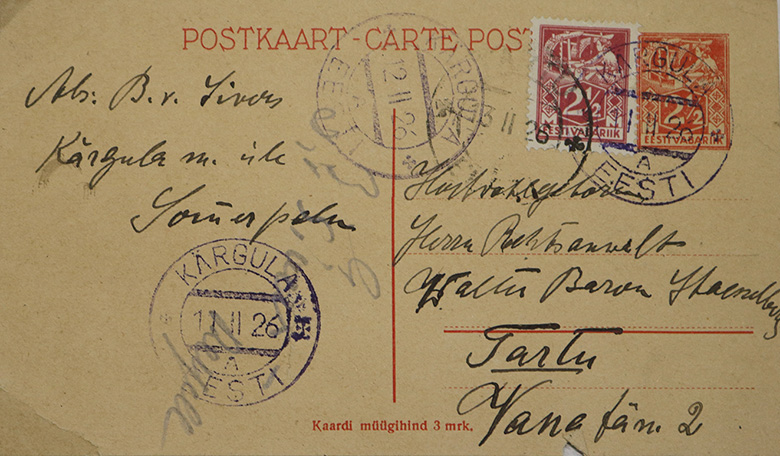 POSTKAART - CARTE POST
Abs: B. v. Sivers
Kärgula m. ük
Sõmerpalu
KÄRGULA
12 II 26
EESTI
II 26
2½
EESTI VABARIIK
2½
EESTI VABARIIK
KÄRGULA
11 II 26
A
EESTI
Hochwohlgeboren
Herrn Rechtsanwalt
Walter Baron Stackelberg
Tartu
Vana tän. 2
KÄRGULA
11 II 26
A
EESTI
Kaardi müügihind 3 mrk.